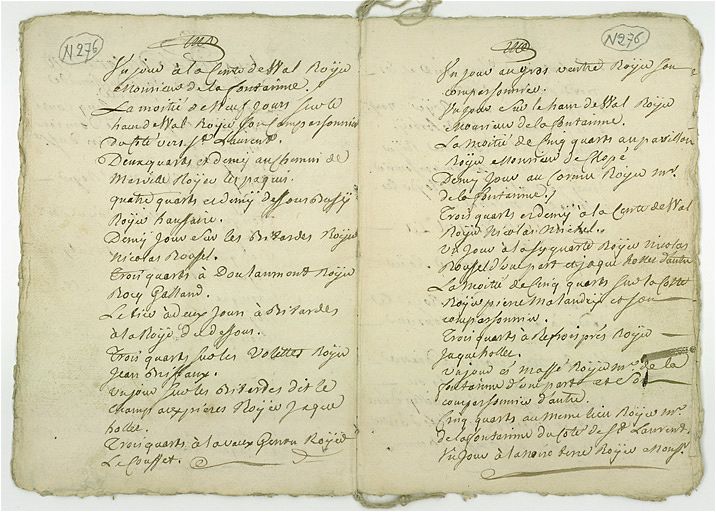 N 276
Un jour à la Corre de Wal Royer
Monsieur de la Fontainne.
La moitié de Neuf Jours sur le
haut de Wal Royer son Comparsonnier
Du Coté vers St Laurent.
Deux quarts et demy au Chemin de
Merville Royer les paquis
quatre quarts et demy dessous
Royer
Demy Jour sur les Britardes Royer
Nicolas Roussel.
Trois quarts à Doulaumont Royer
Rocq Galland.
Le tier à deux Jours à Britardes
à la Royé de dessous.
Trois quarts sur les Volettes Royer
Jean Brissaux.
Un jour sur les Britardes dit le
champ aux pierres Royer Jaque
hollee.
Trois quarts à la vaux Royer
Le Cousset.
N 276
Un jour au gros ventre Royer son
comparsonnier.
Un jour sur le haut de Wal Royer
Monsieur de la Fontainne.
La moitié de Cinq quarts au pavillon
Royer Monsieur de
Demy Jour au Cornu Royer mr.
de la Fontainne.
Trois quarts et demy à la Corre de Wal
Royer Nicolas Michel.
Un jour à la Royer Nicolas
Roussel d'une part et Jaque hollee d'autre
La moitié de Cinq quarts sur la Cotte
Royer pierre Malandry et son
comparsonnier.
Trois quarts à prés Royer
Jaque hollee.
Un jour Massé Royer mr. de la
Fontainne d'une part et son
comparsonnier d'autre.
Cinq quarts au meme lieu Royer mr.
de la Fontainne du Coté de St Laurent
Un jour à la noire terre Royer Monsr.